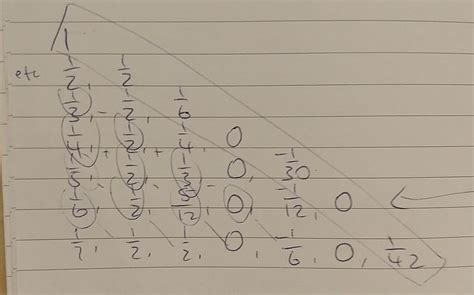 1
etc 1/2, 1/2
1/3, - 1/2, 1/6
1/4, + 1/2, + 1/4, 0
1/5, - 1/2, - 1/3 - 0, -1/30
1/6, 1/2, 5/12, 0, -1/12, 0
1/7, 1/2, 1/2, 0, -1/6, 0, 1/42